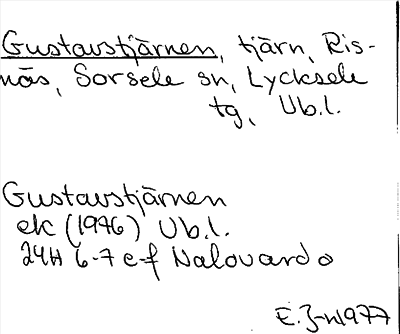 Gustavstjärnen, tjärn, Ris-
näs, Sorsele sn, Lycksele
tg, Vb.l.
Gustavstjärnen
ek (1976) Vb.l.
24H 6-7 e-f Nalovardo
E.J-n 1977